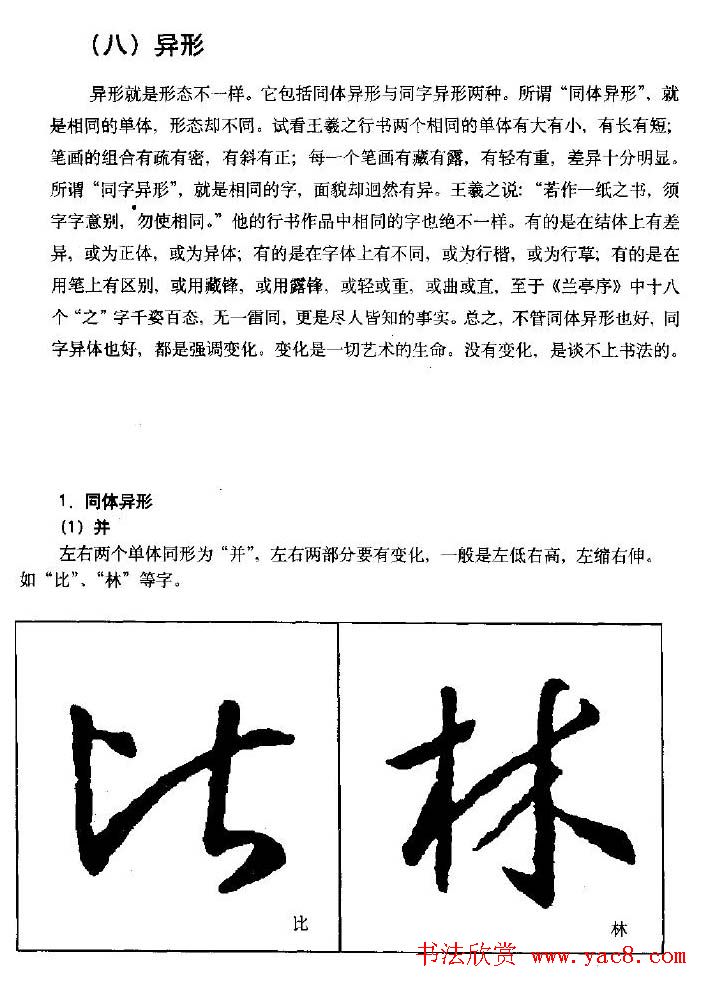 （八）异形
异形就是形态不一样。它包括同体异形与同字异形两种。所谓“同体异形”，就
是相同的单体，形态却不同。试看王羲之行书两个相同的单体有大有小，有长有短；
笔画的组合有疏有密，有斜有正；每一个笔画有藏有露，有轻有重，差异十分明显。
所谓“同字异形”，就是相同的字，面貌却迥然有异。王羲之说：“若作一纸之书，须
字字意别，勿使相同。”他的行书作品中相同的字也绝不一样。有的是在结体上有差
异，或为正体，或为异体；有的是在字体上有不同，或为行楷，或为行草；有的是在
用笔上有区别，或用藏锋，或用露锋，或轻或重，或曲或直，至于《兰亭序》中十八
个“之”字千姿百态，无一雷同，更是尽人皆知的事实。总之，不管同体异形也好，同
字异体也好，都是强调变化。变化是一切艺术的生命。没有变化，是谈不上书法的。
1．同体异形
（1）并
左右两个单体同形为“并”，左右两部分要有变化，一般是左低右高，左缩右伸。
如“比”、“林”等字。
比 林
比
林
书法欣赏 www.yac8.com